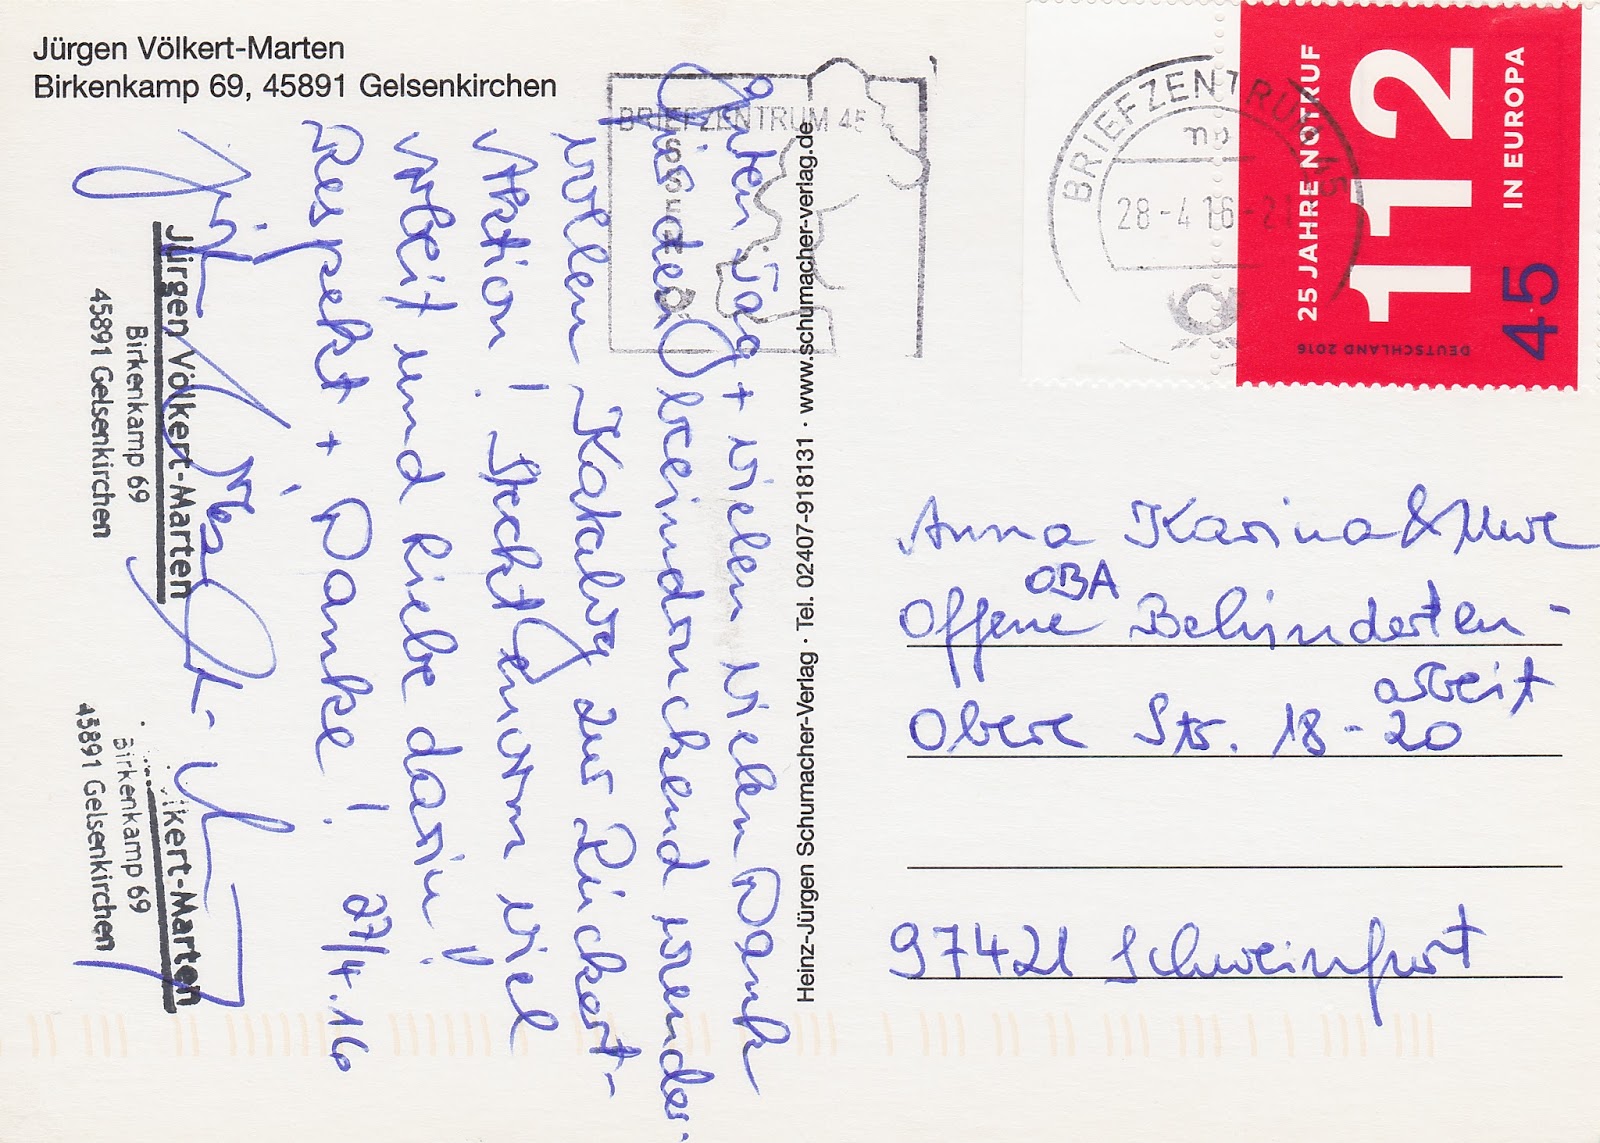 Jürgen Völkert-Marten
Birkenkamp 69, 45891 Gelsenkirchen
BRIEFZENTRUM 45
BRIEFZENTRUM 45
mb
28-4 16-21
25 JAHRE NOTRUF
112
IN EUROPA
45
DEUTSCHLAND 2016
Guten Tag + vielen vielen Dank
für den beeindruckend wunder-
vollen Katalog zur Rückert-
Aktion! Steckt enorm viel
Arbeit und Liebe darin!
Respekt + Danke! 27/4.16
Jürgen Völkert-Marten
Jürgen Völkert-Marten
Birkenkamp 69
45891 Gelsenkirchen
lkert-Marten
Birkenkamp 69
45891 Gelsenkirchen
Heinz-Jürgen Schumacher-Verlag · Tel. 02407-918131 · www.schumacher-verlag.de
Anna Karina & Uwe
OBA
Offene Behinderten-
arbeit
Obere Str. 18-20
97421 Schweinfurt